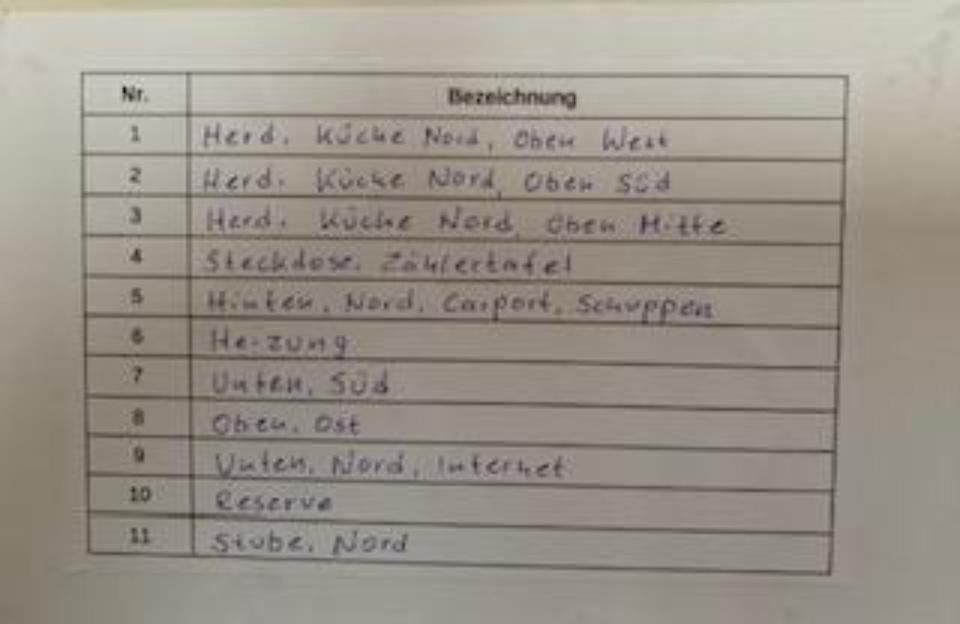 Nr. Bezeichnung
1 Herd. Küche Nord, Oben West
2 Herd. Küche Nord, Oben Süd
3 Herd. Küche Nord, Oben Mitte
4 Steckdose. Zählertafel
5 Hinten, Nord, Carport, Schuppen
6 Heizung
7 Unten, Süd
8 Oben, Ost
9 Unten, Nord, Internet
10 Reserve
11 Stube, Nord